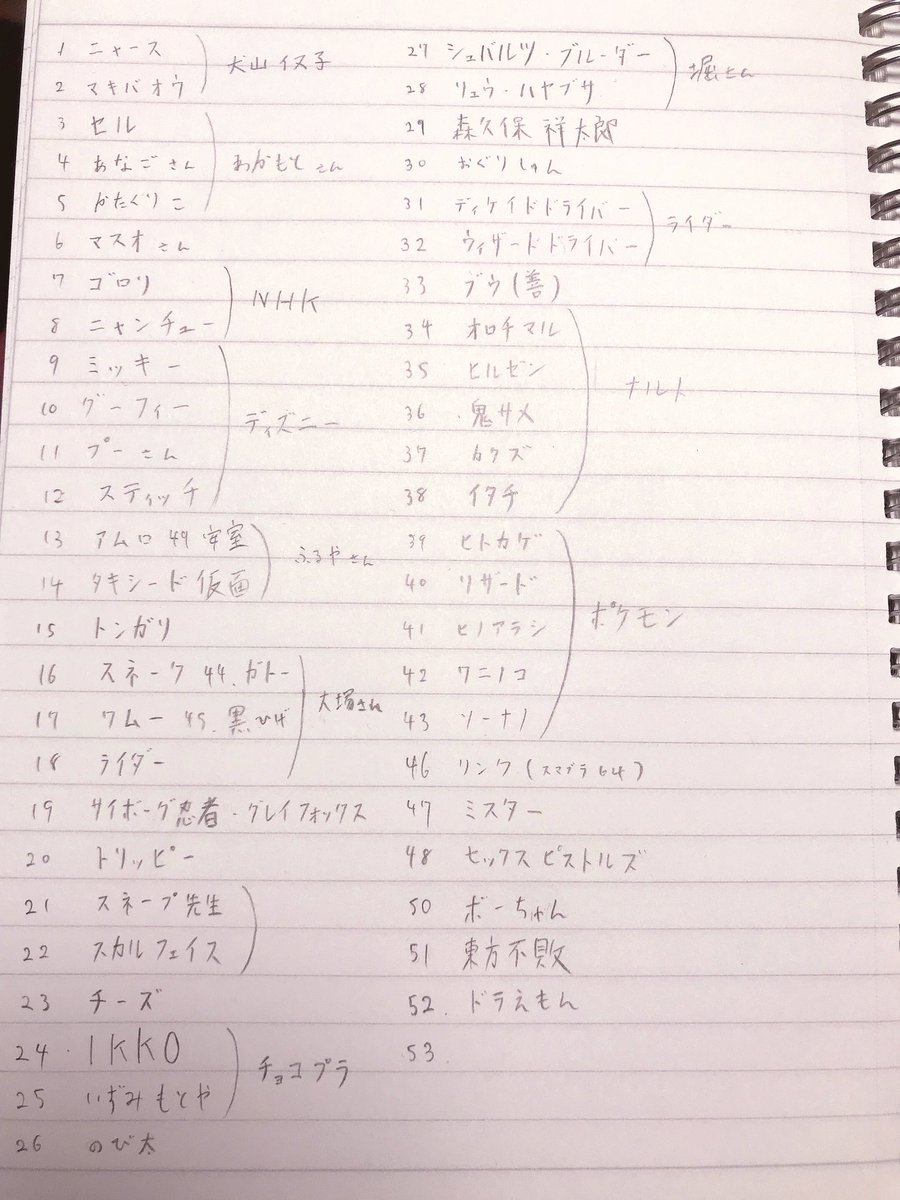 1 ニャース
2 マキバオウ
犬山イヌ子
3 セル
4 あなごさん
5 かたくりこ
わかもとさん
6 マスオさん
7 ゴロリ
8 ニャンチュー
NHK
9 ミッキー
10 グーフィー
11 プーさん
12 スティッチ
ディズニー
13 アムロ 49 安室
14 タキシード仮面
ふるやさん
15 トンガリ
16 スネーク 44. ガトー
17 ワムー 45. 黒ひげ
18 ライダー
大塚さん
19 サイボーグ忍者・グレイフォックス
20 トリッピー
21 スネープ先生
22 スカルフェイス
23 チーズ
24 IKKO
25 いずみもとや
チョコプラ
26 のび太
27 シュバルツ・ブルーダー
28 リュウ・ハヤブサ
堀さん
29 森久保祥太郎
30 おぐりしゅん
31 ディケイドドライバー
32 ウィザードドライバー
ライダー
33 ブウ(善)
34 オロチマル
35 ヒルゼン
36 鬼サメ
37 カクズ
38 イタチ
ナルト
39 ヒトカゲ
40 リザード
41 ヒノアラシ
42 ワニノコ
43 ソーナノ
ポケモン
46 リンク(スマブラ64)
47 ミスター
48 セックスピストルズ
50 ボーちゃん
51 東方不敗
52. ドラえもん
53.